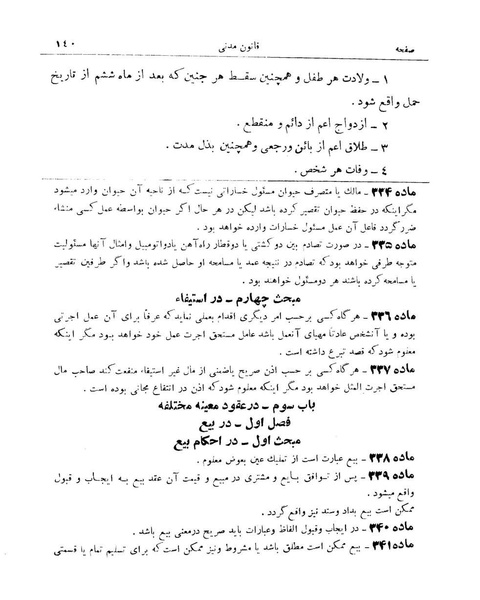 صفحه قانون مدنی ۱۴۰
۱ ــ ولادت هر طفل و همچنین سقط هر جنین که بعد از ماه ششم از تاریخ
حمل واقع شود .
۲ ــ ازدواج اعم از دائم و منقطع .
۳ ــ طلاق اعم از بائن ورجعی وهمچنین بذل مدت .
٤ ــ وفات هر شخص .
ماده ۳۳۴ ــ مالك یا متصرف حیوان مسئول خساراتی نیست که از ناحیه آن حیوان وارد میشود
مگر اینکه در حفظ حیوان تقصیر کرده باشد لیکن در هر حال اگر حیوان بواسطه عمل کسی منشاء
ضرر گردد فاعل آن عمل مسئول خسارات وارده خواهد بود .
ماده ۳۳۵ ــ در صورت تصادم بین دو کشتی یا دوقطار راه آهن یادواتومبیل وامثال آنها مسئولیت
متوجه طرفی خواهد بود که تصادم در نتیجه عمد یا مسامحه او حاصل شده باشد واگر طرفین تقصیر
یا مسامحه کرده باشند هر دومسئول خواهند بود .
مبحث چهارم ــ در استیفاء
ماده ۳۳۶ ــ هر گاه کسی بر حسب امر دیگری اقدام بعملی نماید که عرفاً برای آن عمل اجرتی
بوده و یا آنشخص عادتاً مهیای آنعمل باشد عامل مستحق اجرت عمل خود خواهد بود مگر اینکه
معلوم شود که قصد تبرع داشته است .
ماده ۳۳۷ ــ هر گاه کسی بر حسب اذن صریح یاضمنی از مال غیر استیفاء منفعت کند صاحب مال
مستحق اجرت المثل خواهد بود مگر اینکه معلوم شود که اذن در انتفاع مجانی بوده است .
باب سوم ــ در عقود معینه مختلفه
فصل اول ــ در بیع
مبحث اول ــ در احکام بیع
ماده ۳۳۸ ــ بیع عبارت است از تملیك عین بعوض معلوم .
ماده ۳۳۹ ــ پس از توافق بایع و مشتری در مبیع و قیمت آن عقد بیع به ایجاب و قبول
واقع میشود .
ممکن است بیع بداد وستد نیز واقع گردد .
ماده ۳۴۰ ــ در ایجاب وقبول الفاظ وعبارات باید صریح درمعنی بیع باشد .
ماده ۳۴۱ ــ بیع ممکن است مطلق باشد یا مشروط ونیز ممکن است که برای تسلیم تمام یا قسمتی